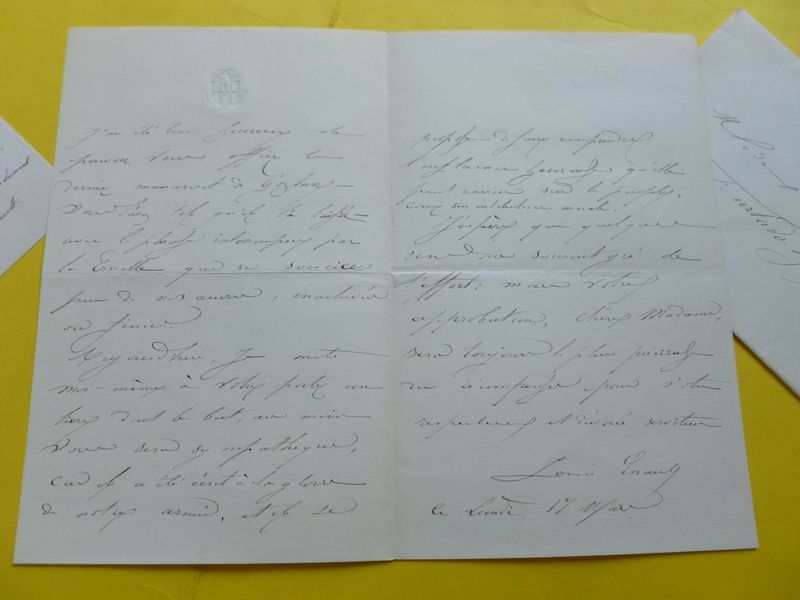 J'ai été bien heureux de
pouvoir vous offrir le
dernier manuscrit de Gozlan –
Vous l'avez tel qu'il l'a laissé –
avec la phrase interrompue par
la cruelle qui se soucie
peu de nos œuvres, inachevées
ou finies.
Aujourd'hui, Je mets
moi-même à votre porte un
livre dont le but, au moins
vous sera sympathique,
car il a été écrit à la gloire
de notre armée, et il se
propose de faire comprendre
l'influence qu'elle
peut exercer sur le peuple,
comme institution morale.
J'espère que quelques
uns me sauront gré de
l'effort; mais votre
approbation, chère Madame,
sera toujours la plus précieuse
des récompenses pour votre
respectueux et dévoué serviteur
Louis Enault
ce Lundi 17 Mars
Madame